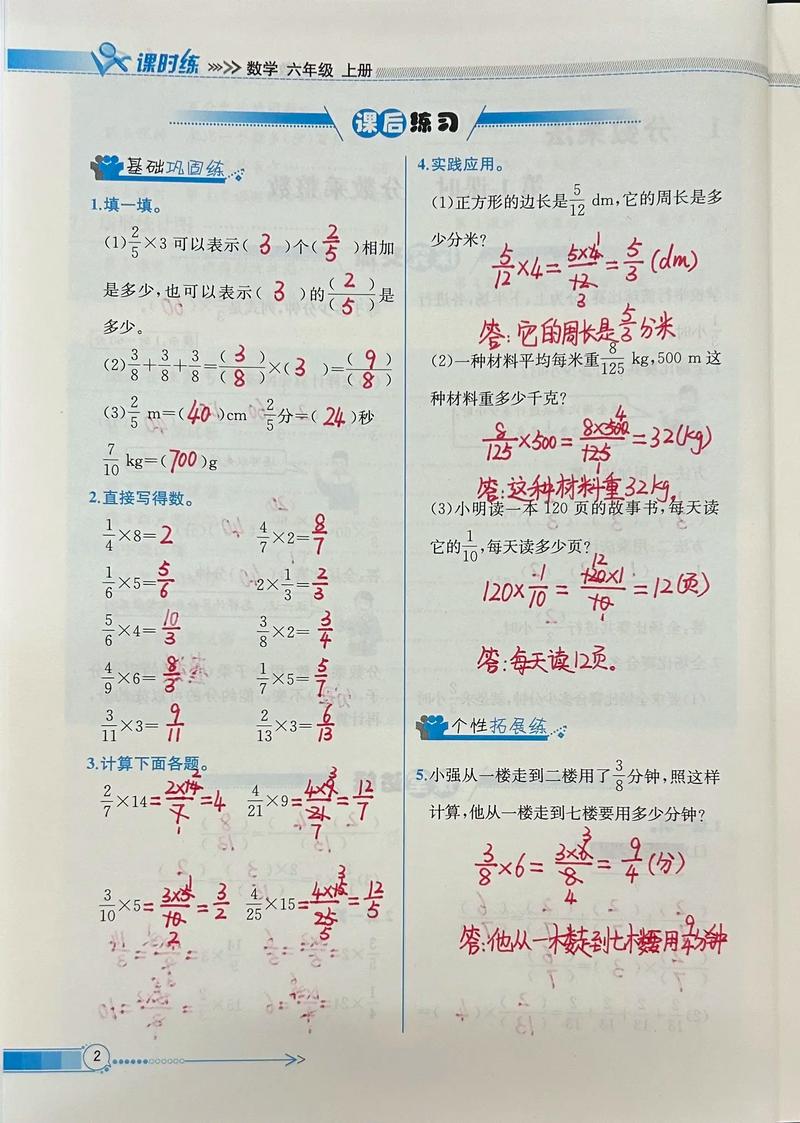 课时练 数学 六年级 上册
课后练习
基础巩固练
1.填一填。
(1)2/5×3可以表示( 3 )个( 2/5 )相加
是多少,也可以表示( 3 )的( 2 )/( 5 )是
多少。
(2)3/8+3/8+3/8=( 3 )/( 8 )×( 3 )=( 9 )/( 8 )
(3)2/5 m=( 40 )cm 2/5分=( 24 )秒
7/10 kg=( 700 )g
2.直接写得数。
1/4×8=2 4/7×2=8/7
1/6×5=5/6 2×1/3=2/3
5/6×4=10/3 3/8×2=3/4
4/9×6=8/3 1/7×5=5/7
3/11×3=9/11 2/13×3=6/13
3.计算下面各题。
2/7×14=2×14/7=4 4/21×9=4×9/21=12/7
3/10×5=3×5/10=3/2 4/25×15=4×15/25=12/5
4.实践应用。
(1)正方形的边长是5/12 dm,它的周长是多
少分米?
5/12×4=5×4/12=5/3(dm)
答:它的周长是5/3分米
(2)一种材料平均每米重8/125 kg,500 m这
种材料重多少千克?
8/125×500=8×500/125=32(kg)
答:这种材料重32kg。
(3)小明读一本120页的故事书,每天读
它的1/10,每天读多少页?
120×1/10=120×1/10=12(页)
答:每天读12页。
个性拓展练
5.小强从一楼走到二楼用了3/8分钟,照这样
计算,他从一楼走到七楼要用多少分钟?
3/8×6=3×6/8=9/4(分)
答:他从一楼走到七楼要用9/4分钟
2